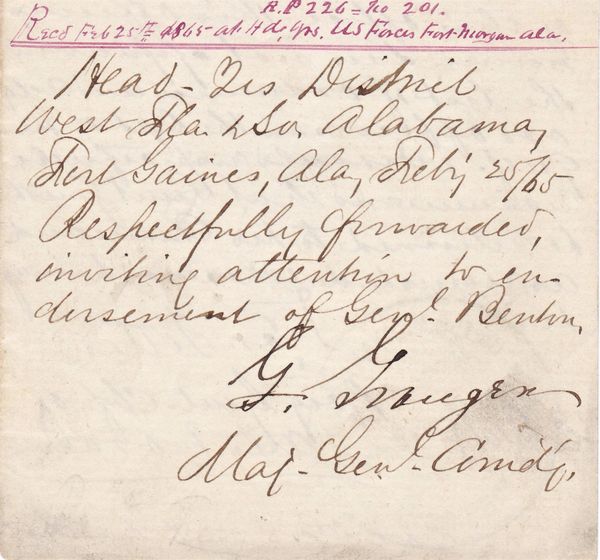 R.P 226 = No 201.
Recd Feb 25th 1865 at Hd. Qrs. US Forces Fort Morgan Ala.
Head-Qrs District
West Fla. & So. Alabama,
Fort Gaines, Ala, Feb'y 25/65
Respectfully forwarded,
inviting attention to en-
dorsement of Gen'l. Benton.
G. Granger
Maj- Gen'l- Comd'g.